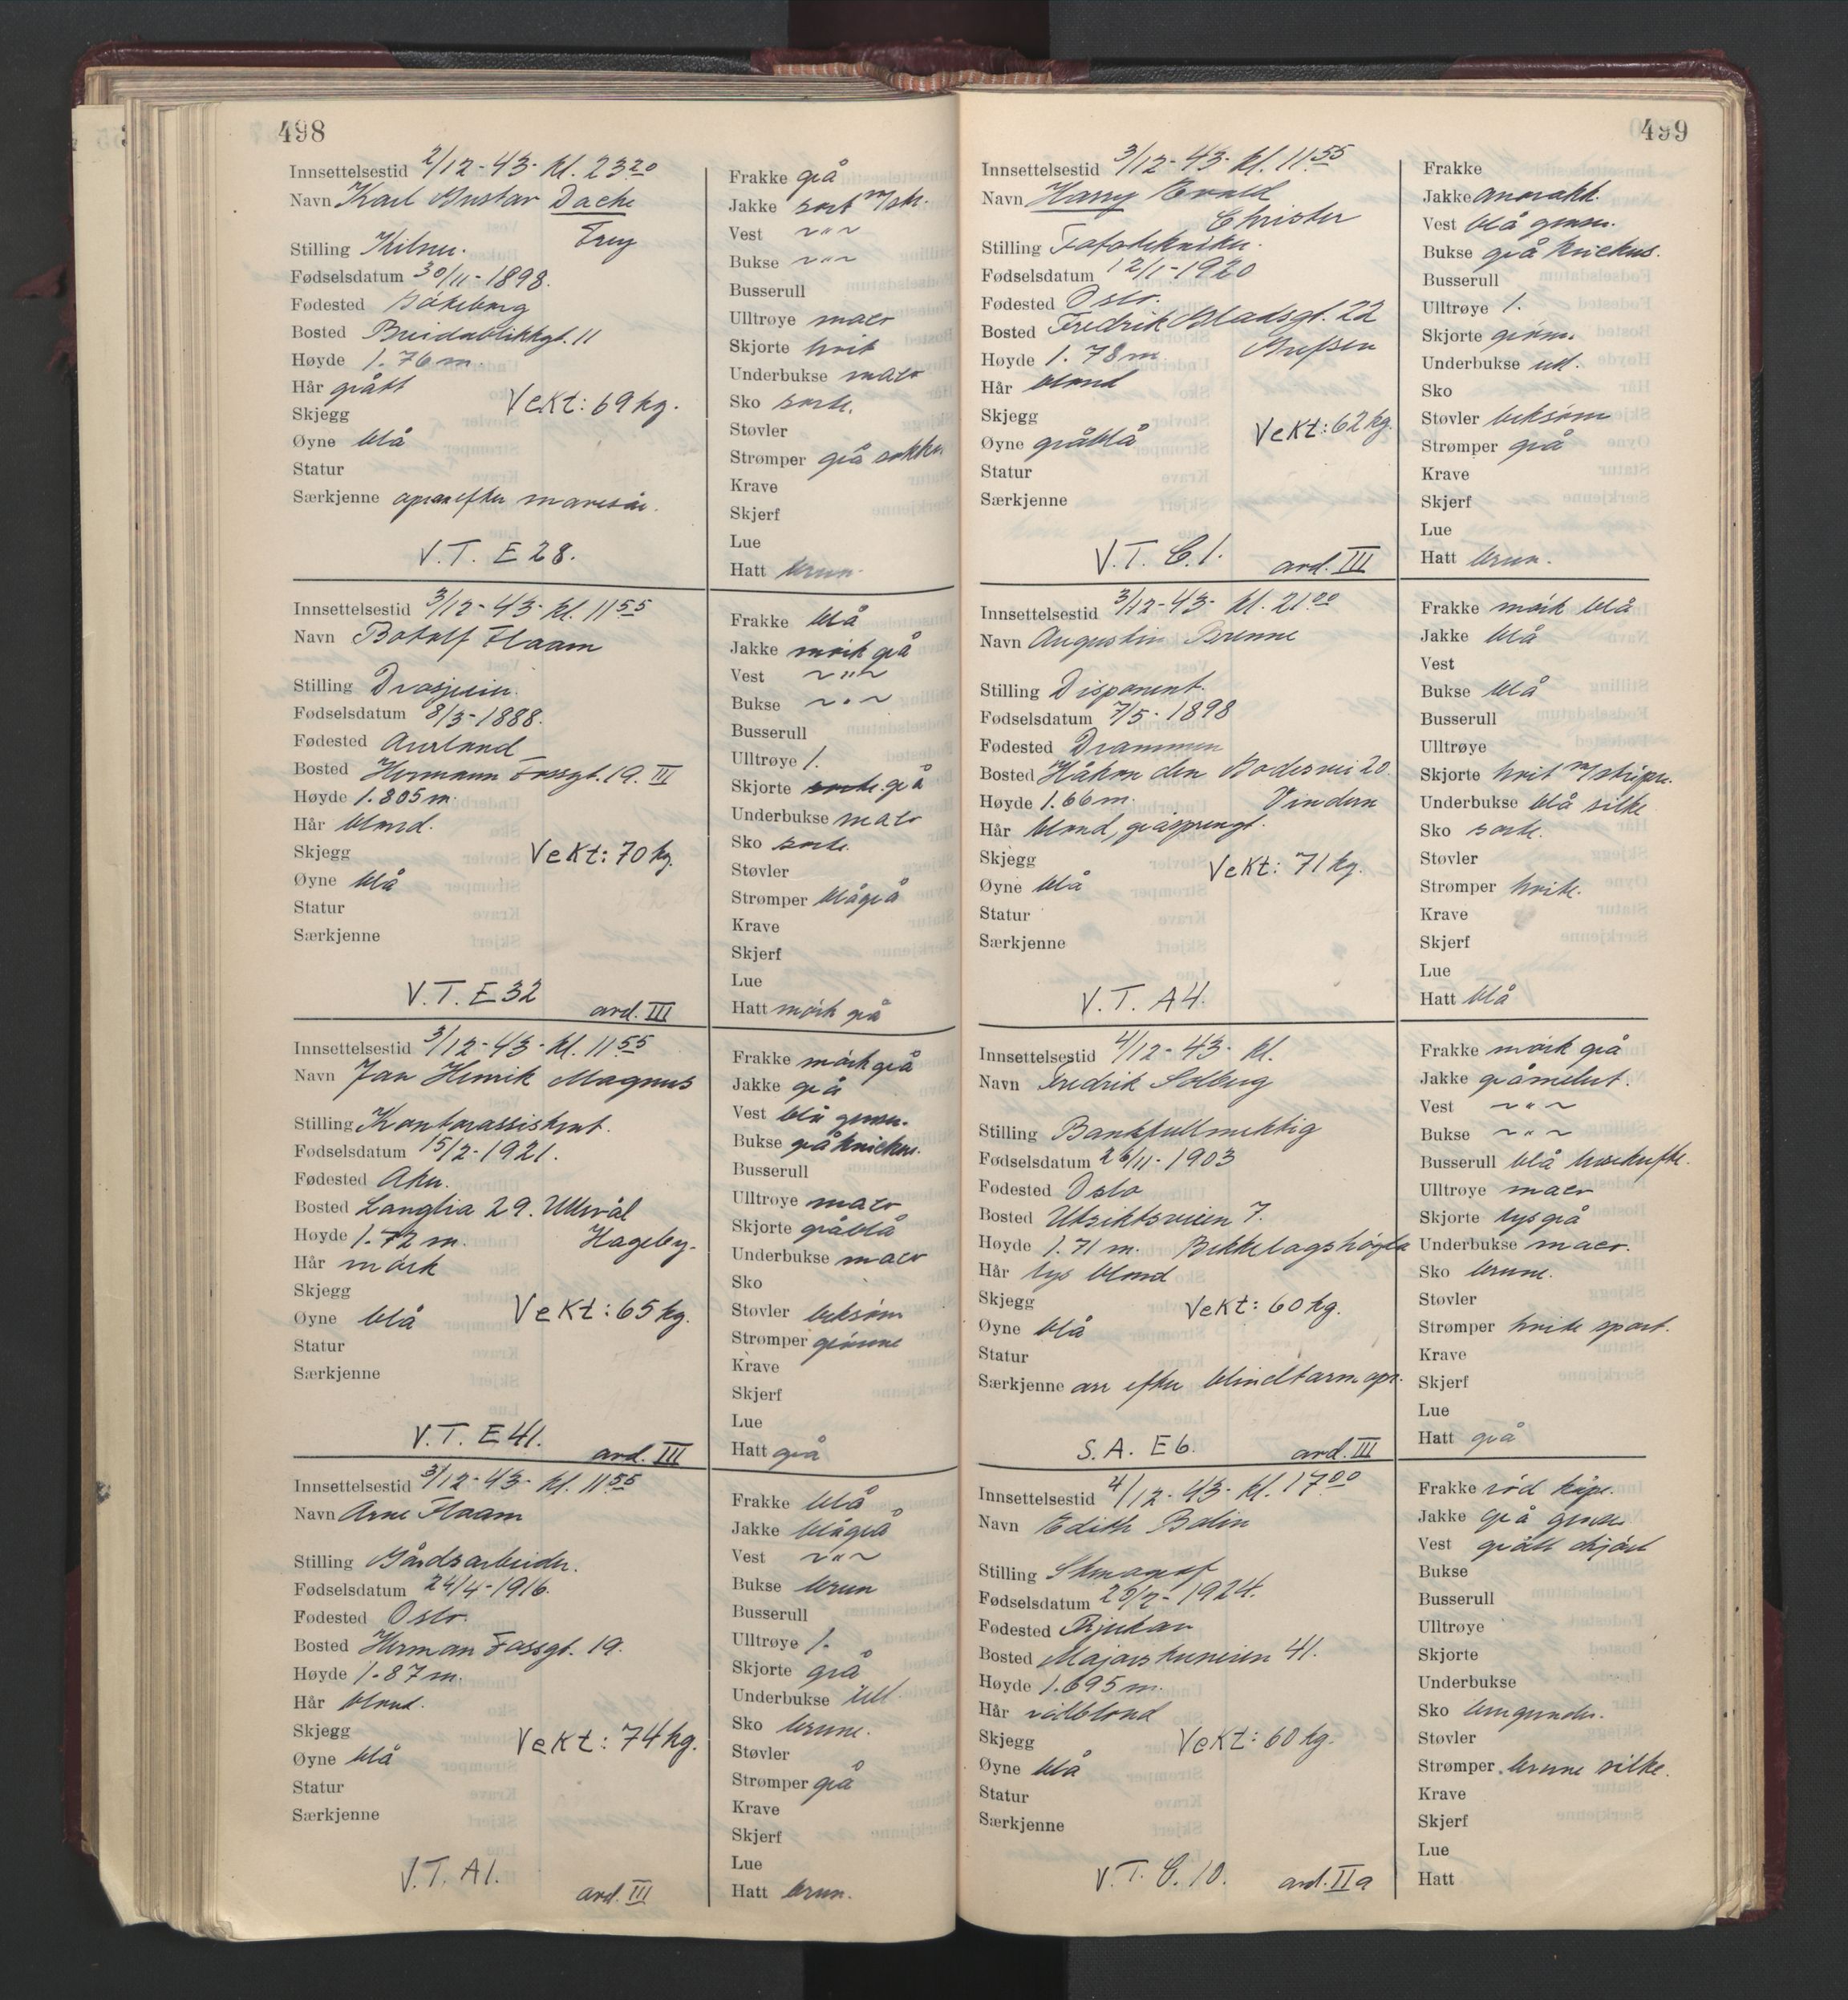 498
Innsettelsestid 2/12-43- kl. 23 20
Navn Karl Gustav Dache
Frey
Stilling Kelner.
Fødselsdatum 30/11-1898.
Fødested
Bosted Breidablikkgt. 11
Høyde 1.76 m.
Hår grått
Vekt: 69 kg.
Skjegg
Øyne blå
Statur
Særkjenne efter mavesår.
V.T. E 28.
Frakke grå
Jakke sort m/str.
Vest ~"~
Bukse ~"~
Busserull
Ulltrøye maco
Skjorte hvit
Underbukse maco
Sko sorte.
Støvler
Strømper grå sokker
Krave
Skjerf
Lue
Hatt brun.
Innsettelsestid 3/12-43- kl. 11 55
Navn Botolf Flaam
Stilling Drosjeeier.
Fødselsdatum 8/3-1888.
Fødested Aurland
Bosted Hermann Fossgt. 19. III
Høyde 1.805 m.
Hår blond.
Skjegg
Vekt: 70 kg.
Øyne blå
Statur
Særkjenne
V.T. E 32
ard. III
Frakke blå
Jakke mörk grå
Vest ~"~
Bukse ~"~
Busserull
Ulltrøye 1.
Skjorte grå
Underbukse maco
Sko sorte.
Støvler
Strømper blågrå
Krave
Skjerf
Lue
Hatt mörk grå
Innsettelsestid 3/12-43- kl. 11 55
Navn Jan Henrik Magnus
Stilling Kontorassistent.
Fødselsdatum 15/2-1921.
Fødested Aker.
Bosted Langlia 29. Ullevål
Hageby.
Høyde 1.72 m.
Hår mörk
Skjegg
Øyne blå
Vekt: 65 kg.
Statur
Særkjenne
V.T. E 41.
ard. III
Frakke mörk grå
Jakke grå
Vest blå genser.
Bukse grå knickers.
Busserull
Ulltrøye maco
Skjorte gråblå
Underbukse maco
Sko
Støvler beksöm
Strømper grönne
Krave
Skjerf
Lue
Hatt grå
Innsettelsestid 3/12-43- kl. 11 55
Navn Arne Flaam
Stilling Gårdsarbeider.
Fødselsdatum 24/4-1916.
Fødested Oslo.
Bosted Herman Fossgt. 19.
Høyde 1.87 m.
Hår blond.
Skjegg
Vekt: 74 kg.
Øyne blå
Statur
Særkjenne
V.T. A1.
ard. III
Frakke blå
Jakke blågrå
Vest ~"~
Bukse brun
Busserull
Ulltrøye 1.
Skjorte grå
Underbukse ull.
Sko brune.
Støvler
Strømper grå
Krave
Skjerf
Lue
Hatt brun.
499
Innsettelsestid 3/12-43- kl. 11 55
Navn Harry Evald
Christer
Stilling Fototekniker.
Fødselsdatum 12/1-1920
Fødested Oslo.
Bosted Fredrik Gladsgt. 22
Grefsen
Høyde 1.78 m.
Hår blond
Skjegg
Øyne gråblå
Vekt: 62 kg.
Statur
Særkjenne
V.T. C.1.
ard. III
Frakke
Jakke anorakk.
Vest blå genser.
Bukse grå knickers.
Busserull
Ulltrøye 1.
Skjorte grönn.
Underbukse ull.
Sko
Støvler beksöm
Strømper grå
Krave
Skjerf
Lue
Hatt brun.
Innsettelsestid 3/12-43- kl. 21 00
Navn Augustin Brenne
Stilling Disponent.
Fødselsdatum 7/5-1898
Fødested Drammen
Bosted Håkon den Godesvei 20.
Vinderen
Høyde 1.66 m.
Hår blond, gråsprengt.
Skjegg
Vekt: 71 kg.
Øyne blå
Statur
Særkjenne
V.T. A4.
Frakke mörk blå
Jakke blå
Vest
Bukse blå
Busserull
Ulltrøye
Skjorte hvit m/striper.
Underbukse blå silke
Sko sorte.
Støvler
Strømper hvite.
Krave
Skjerf
Lue
Hatt blå
Innsettelsestid 4/12-43- kl.
Navn Fredrik Solberg
Stilling Bankfullmektig
Fødselsdatum 26/11-1903
Fødested Oslo
Bosted Utsiktsveien 7.
Høyde 1.71 m. Bekkelagshögda
Hår lys blond
Skjegg
Vekt: 60 kg.
Øyne blå
Statur
Særkjenne arr efter blindtarm opr.
S.A. E6.
ard. III
Frakke mörk grå
Jakke gråmelert.
Vest ~"~
Bukse ~"~
Busserull blå
Ulltrøye maco
Skjorte lysgrå
Underbukse maco.
Sko brune.
Støvler
Strømper hvite sport.
Krave
Skjerf
Lue
Hatt grå
Innsettelsestid 4/12-43- kl. 17 00
Navn Edith Bolin
Stilling Stenograf
Fødselsdatum
Fødested Rjukan
Bosted Majorstuveien 41.
Høyde 1.695 m.
Hår rödblond
Skjegg
Vekt: 60 kg.
Øyne blå
Statur
Særkjenne
V.T. C.10.
ard. IIa
Frakke röd kåpe.
Jakke grå genser
Vest grått skjört
Bukse
Busserull
Ulltrøye
Skjorte
Underbukse
Sko burgunder.
Støvler
Strømper brune silke.
Krave
Skjerf
Lue
Hatt